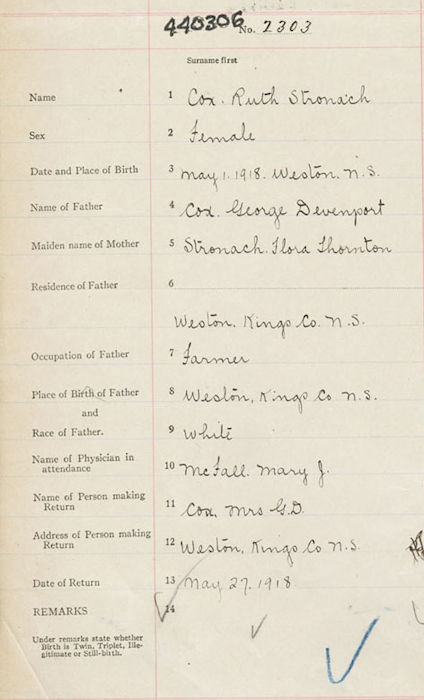 440306 No. 2303
Surname first
Name 1 Cox. Ruth Stronach
Sex 2 Female
Date and Place of Birth 3 May 1. 1918. Weston. N.S.
Name of Father 4 Cox. George Devenport
Maiden name of Mother 5 Stronach. Flora Thornton
Residence of Father 6
Weston. Kings Co. N.S.
Occupation of Father 7 Farmer
Place of Birth of Father 8 Weston, Kings Co N.S.
and
Race of Father. 9 White
Name of Physician in
attendance 10 McFall. Mary J.
Name of Person making
Return 11 Cox, Mrs G.D.
Address of Person making
Return 12 Weston, Kings Co N.S.
Date of Return 13 May 27. 1918
REMARKS 14
Under remarks state whether
Birth is Twin, Triplet, Ille-
gitimate or Still-birth.